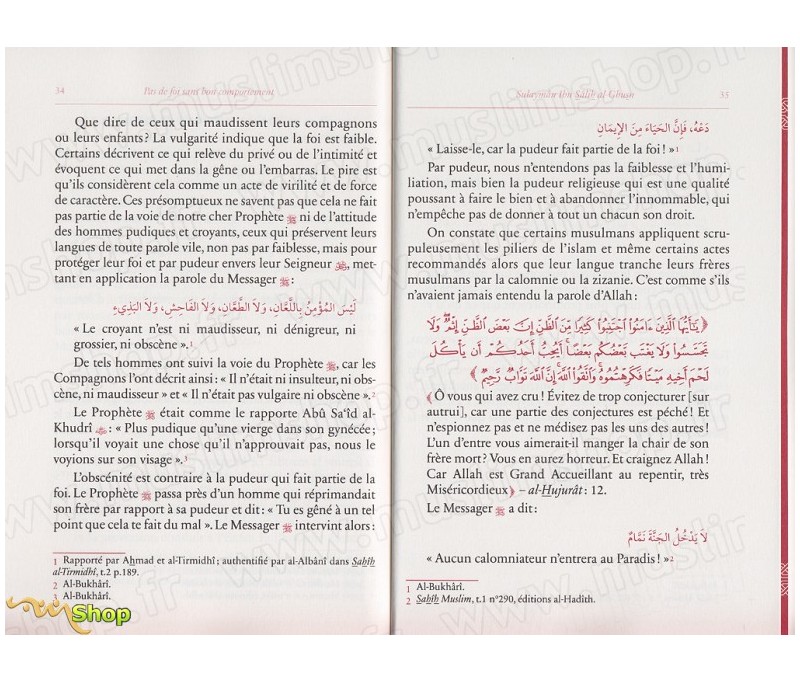 34
Pas de foi sans bon comportement
Que dire de ceux qui maudissent leurs compagnons
ou leurs enfants? La vulgarité indique que la foi est faible.
Certains décrivent ce qui relève du privé ou de l'intimité et
évoquent ce qui met dans la gêne ou l'embarras. Le pire est
qu'ils considèrent cela comme un acte de virilité et de force
de caractère. Ces présomptueux ne savent pas que cela ne fait
pas partie de la voie de notre cher Prophète ﷺ ni de l'attitude
des hommes pudiques et croyants, ceux qui préservent leurs
langues de toute parole vile, non pas par faiblesse, mais pour
protéger leur foi et par pudeur envers leur Seigneur, met-
tant en application la parole du Messager ﷺ :
لَيْسَ المُؤْمِنُ بِاللَّعَّانِ، وَلاَ الطَّعَّانِ، وَلاَ الفَاحِشِ، وَلاَ البَذِيءِ
« Le croyant n'est ni maudisseur, ni dénigreur, ni
grossier, ni obscène ».1
De tels hommes ont suivi la voie du Prophète ﷺ, car les
Compagnons l'ont décrit ainsi : « Il n'était ni insulteur, ni obs-
cène, ni maudisseur » et « Il n'était pas vulgaire ni obscène ».2
Le Prophète ﷺ était comme le rapporte Abû Sa'îd al-
Khudrî : « Plus pudique qu'une vierge dans son gynécée ;
lorsqu'il voyait une chose qu'il n'approuvait pas, nous le
voyions sur son visage ».3
L'obscénité est contraire à la pudeur qui fait partie de la
foi. Le Prophète ﷺ passa près d'un homme qui réprimandait
son frère par rapport à sa pudeur et dit : « Tu es gêné à un tel
point que cela te fait du mal ». Le Messager ﷺ intervint alors :
1 Rapporté par Ahmad et al-Tirmidhî ; authentifié par al-Albânî dans Sahîh
al-Tirmidhî, t.2 p.189.
2 Al-Bukhârî.
3 Al-Bukhârî.
Shop
Sulaymân Ibn Sâlih al-Ghusn
35
دَعْهُ، فَإِنَّ الحَيَاءَ مِنَ الإِيمَانِ
« Laisse-le, car la pudeur fait partie de la foi ! »1
Par pudeur, nous n'entendons pas la faiblesse et l'humi-
liation, mais bien la pudeur religieuse qui est une qualité
poussant à faire le bien et à abandonner l'innommable, qui
n'empêche pas de donner à tout un chacun son droit.
On constate que certains musulmans appliquent scru-
puleusement les piliers de l'islam et même certains actes
recommandés alors que leur langue tranche leurs frères
musulmans par la calomnie ou la zizanie. C'est comme s'ils
n'avaient jamais entendu la parole d'Allah :
﴿ يَٰٓأَيُّهَا ٱلَّذِينَ ءَامَنُوا۟ ٱجْتَنِبُوا۟ كَثِيرًا مِّنَ ٱلظَّنِّ إِنَّ بَعْضَ ٱلظَّنِّ إِثْمٌ وَلَا
تَجَسَّسُوا۟ وَلَا يَغْتَب بَّعْضُكُم بَعْضًا أَيُحِبُّ أَحَدُكُمْ أَن يَأْكُلَ
لَحْمَ أَخِيهِ مَيْتًا فَكَرِهْتُمُوهُ وَٱتَّقُوا۟ ٱللَّهَ إِنَّ ٱللَّهَ تَوَّابٌ رَّحِيمٌ ﴾
﴿ Ô vous qui avez cru ! Évitez de trop conjecturer [sur
autrui], car une partie des conjectures est péché ! Et
n'espionnez pas et ne médisez pas les uns des autres !
L'un d'entre vous aimerait-il manger la chair de son
frère mort ? Vous en aurez horreur. Et craignez Allah !
Car Allah est Grand Accueillant au repentir, très
Miséricordieux ﴾ – al-Hujurât : 12.
Le Messager ﷺ a dit :
لاَ يَدْخُلُ الجَنَّةَ نَمَّامٌ
« Aucun calomniateur n'entrera au Paradis ! »2
1 Al-Bukhârî.
2 Sahîh Muslim, t.1 n°290, éditions al-Hadîth.